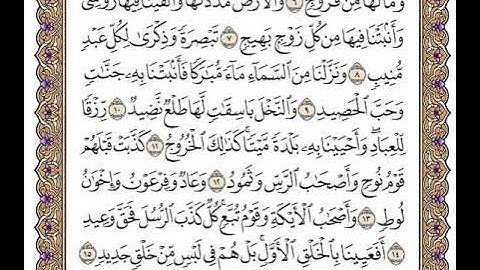 وَمَا لَهَا مِن فُرُوجٍ ٦ وَٱلۡأَرۡضَ مَدَدۡنَٰهَا وَأَلۡقَيۡنَا فِيهَا رَوَٰسِيَ
وَأَنۢبَتۡنَا فِيهَا مِن كُلِّ زَوۡجِۭ بَهِيجٖ ٧ تَبۡصِرَةٗ وَذِكۡرَىٰ لِكُلِّ عَبۡدٖ
مُّنِيبٖ ٨ وَنَزَّلۡنَا مِنَ ٱلسَّمَآءِ مَآءٗ مُّبَٰرَكٗا فَأَنۢبَتۡنَا بِهِۦ جَنَّٰتٖ
وَحَبَّ ٱلۡحَصِيدِ ٩ وَٱلنَّخۡلَ بَاسِقَٰتٖ لَّهَا طَلۡعٞ نَّضِيدٞ ١٠ رِّزۡقٗا
لِّلۡعِبَادِۖ وَأَحۡيَيۡنَا بِهِۦ بَلۡدَةٗ مَّيۡتٗاۚ كَذَٰلِكَ ٱلۡخُرُوجُ ١١ كَذَّبَتۡ قَبۡلَهُمۡ
قَوۡمُ نُوحٖ وَأَصۡحَٰبُ ٱلرَّسِّ وَثَمُودُ ١٢ وَعَادٞ وَفِرۡعَوۡنُ وَإِخۡوَٰنُ
لُوطٖ ١٣ وَأَصۡحَٰبُ ٱلۡأَيۡكَةِ وَقَوۡمُ تُبَّعٖۚ كُلّٞ كَذَّبَ ٱلرُّسُلَ فَحَقَّ وَعِيدِ
١٤ أَفَعَيِينَا بِٱلۡخَلۡقِ ٱلۡأَوَّلِۚ بَلۡ هُمۡ فِي لَبۡسٖ مِّنۡ خَلۡقٖ جَدِيدٖ ١٥